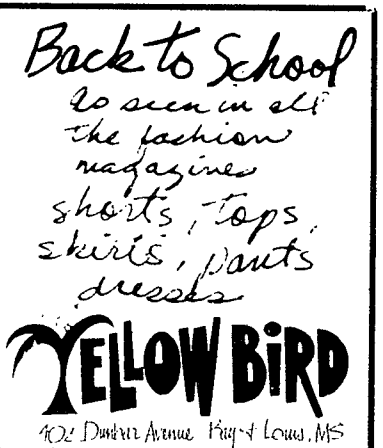 Back to School
As seen in all
the fashion
magazines
shorts, tops,
skirts, pants
dresses
YELLOW BIRD
Avenue Louis, MS